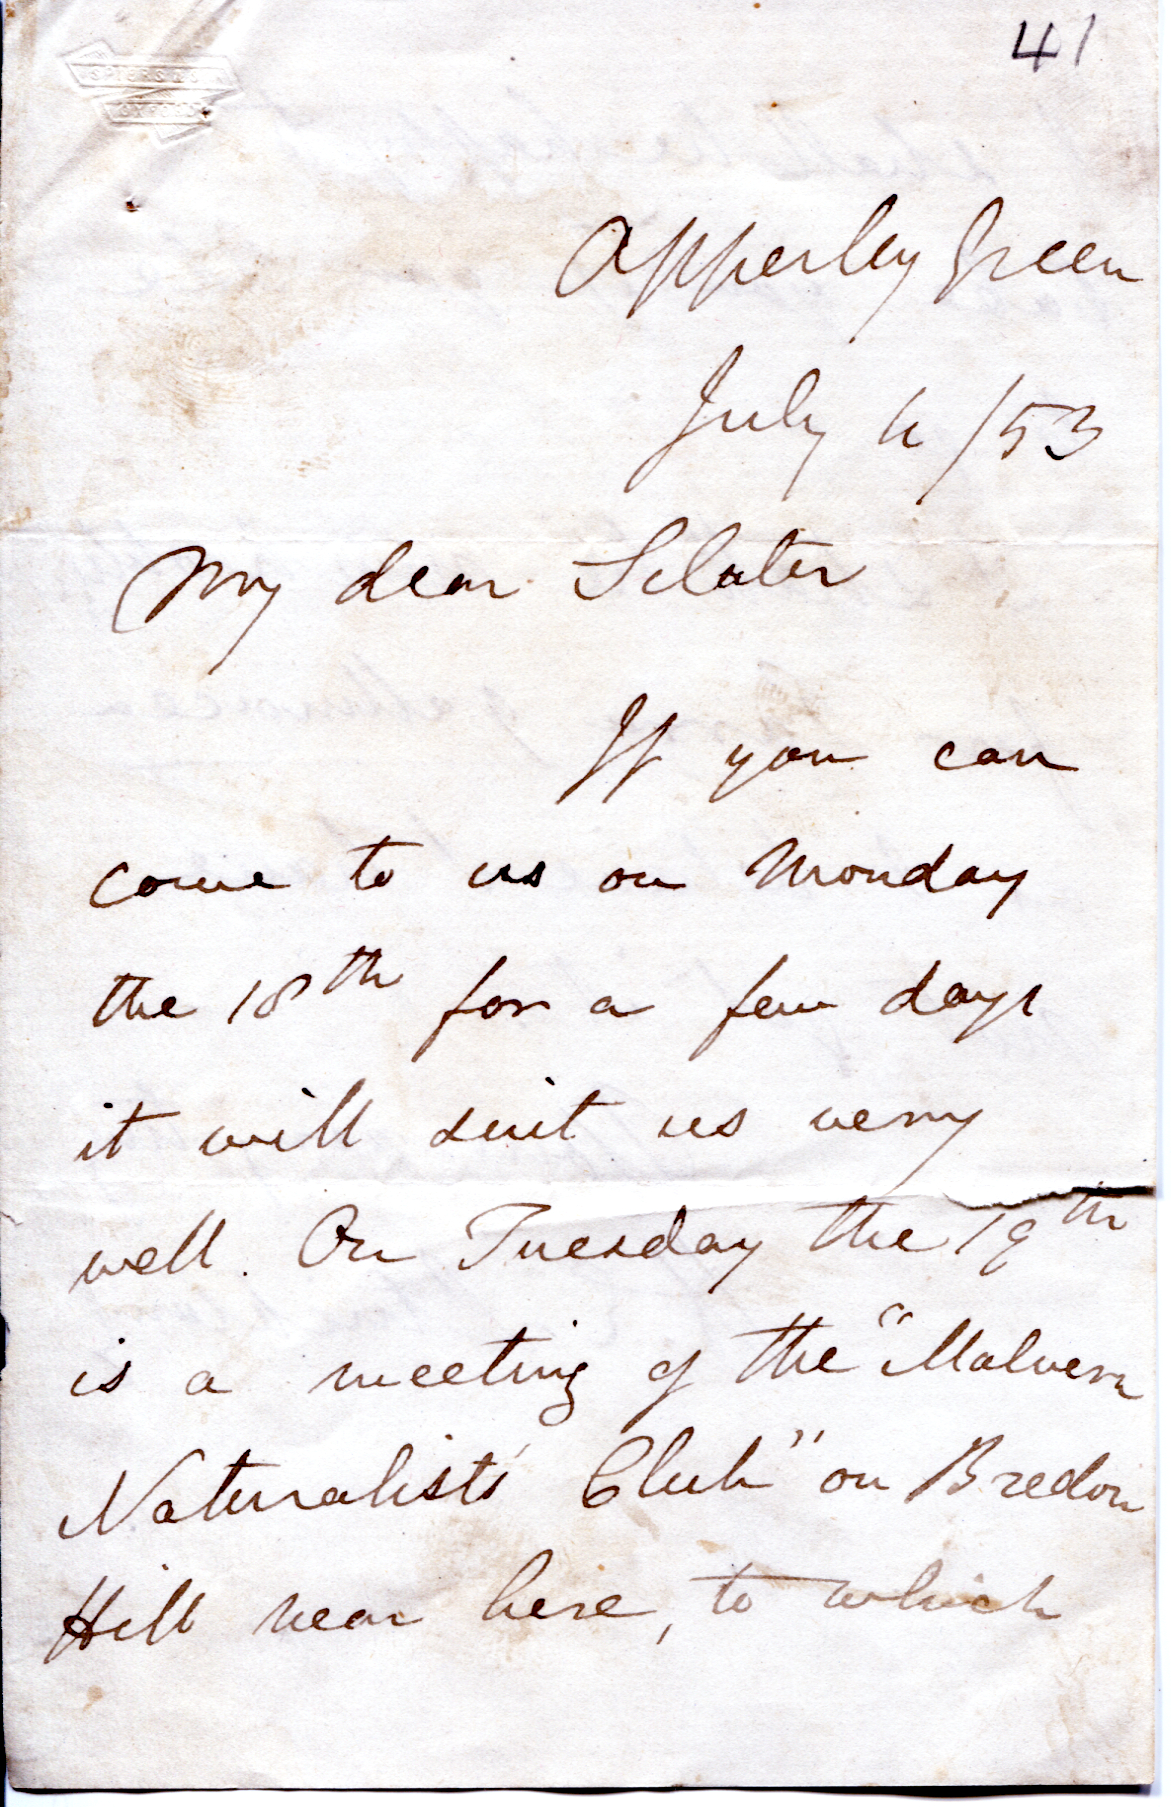 41
SPIERS & SON
OXFORD
Apperley Green
July 6/53
My dear Sclater
If you can
come to us on Monday
the 18th for a few days
it will suit us very
well. On Tuesday the 19th
is a meeting of the "Malvern
Naturalists' Club" on Bredon
Hill near here, to which